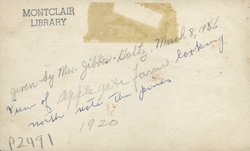 MONTCLAIR
LIBRARY
given by Mrs. Gibbs-Goltz, March 8, 1986
View of Applegate farm looking
north note the pines
1920
P2491